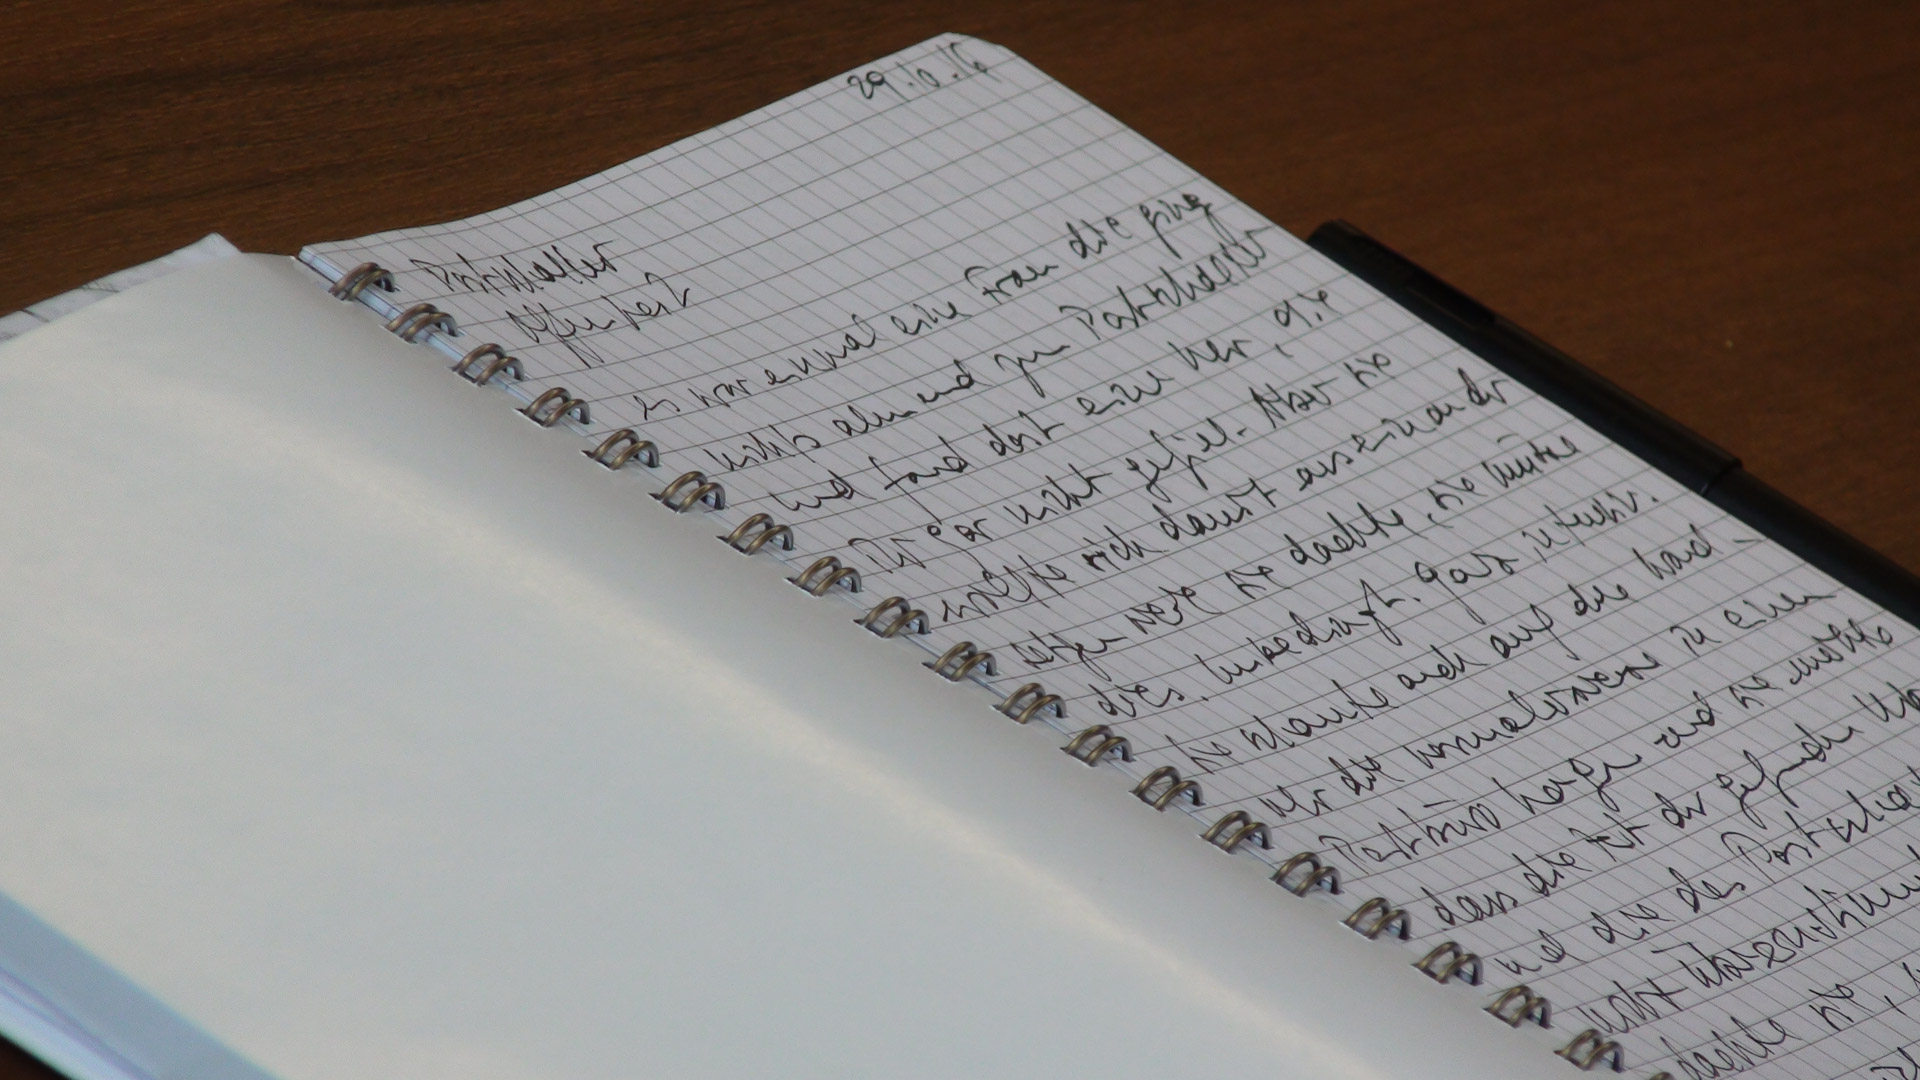 29.10.16
Postschalter
offenheit
es war einmal eine Frau die ging
nichts ahnend zum Postschalter
und fand dort eine vor, die
ihr gar nicht gefiel. Aber sie
wollte sich damit auseinander
setzen weil sie dachte, sie müsse
dies. unbedingt. ganz,
sie schaute auch auf die Wand-
uhr die normalerweise in einem
Postbüro hängt und sie merkte
dass die Zeit der gefunden
und die des Postschal
nicht übereinstimm
dachte sie,